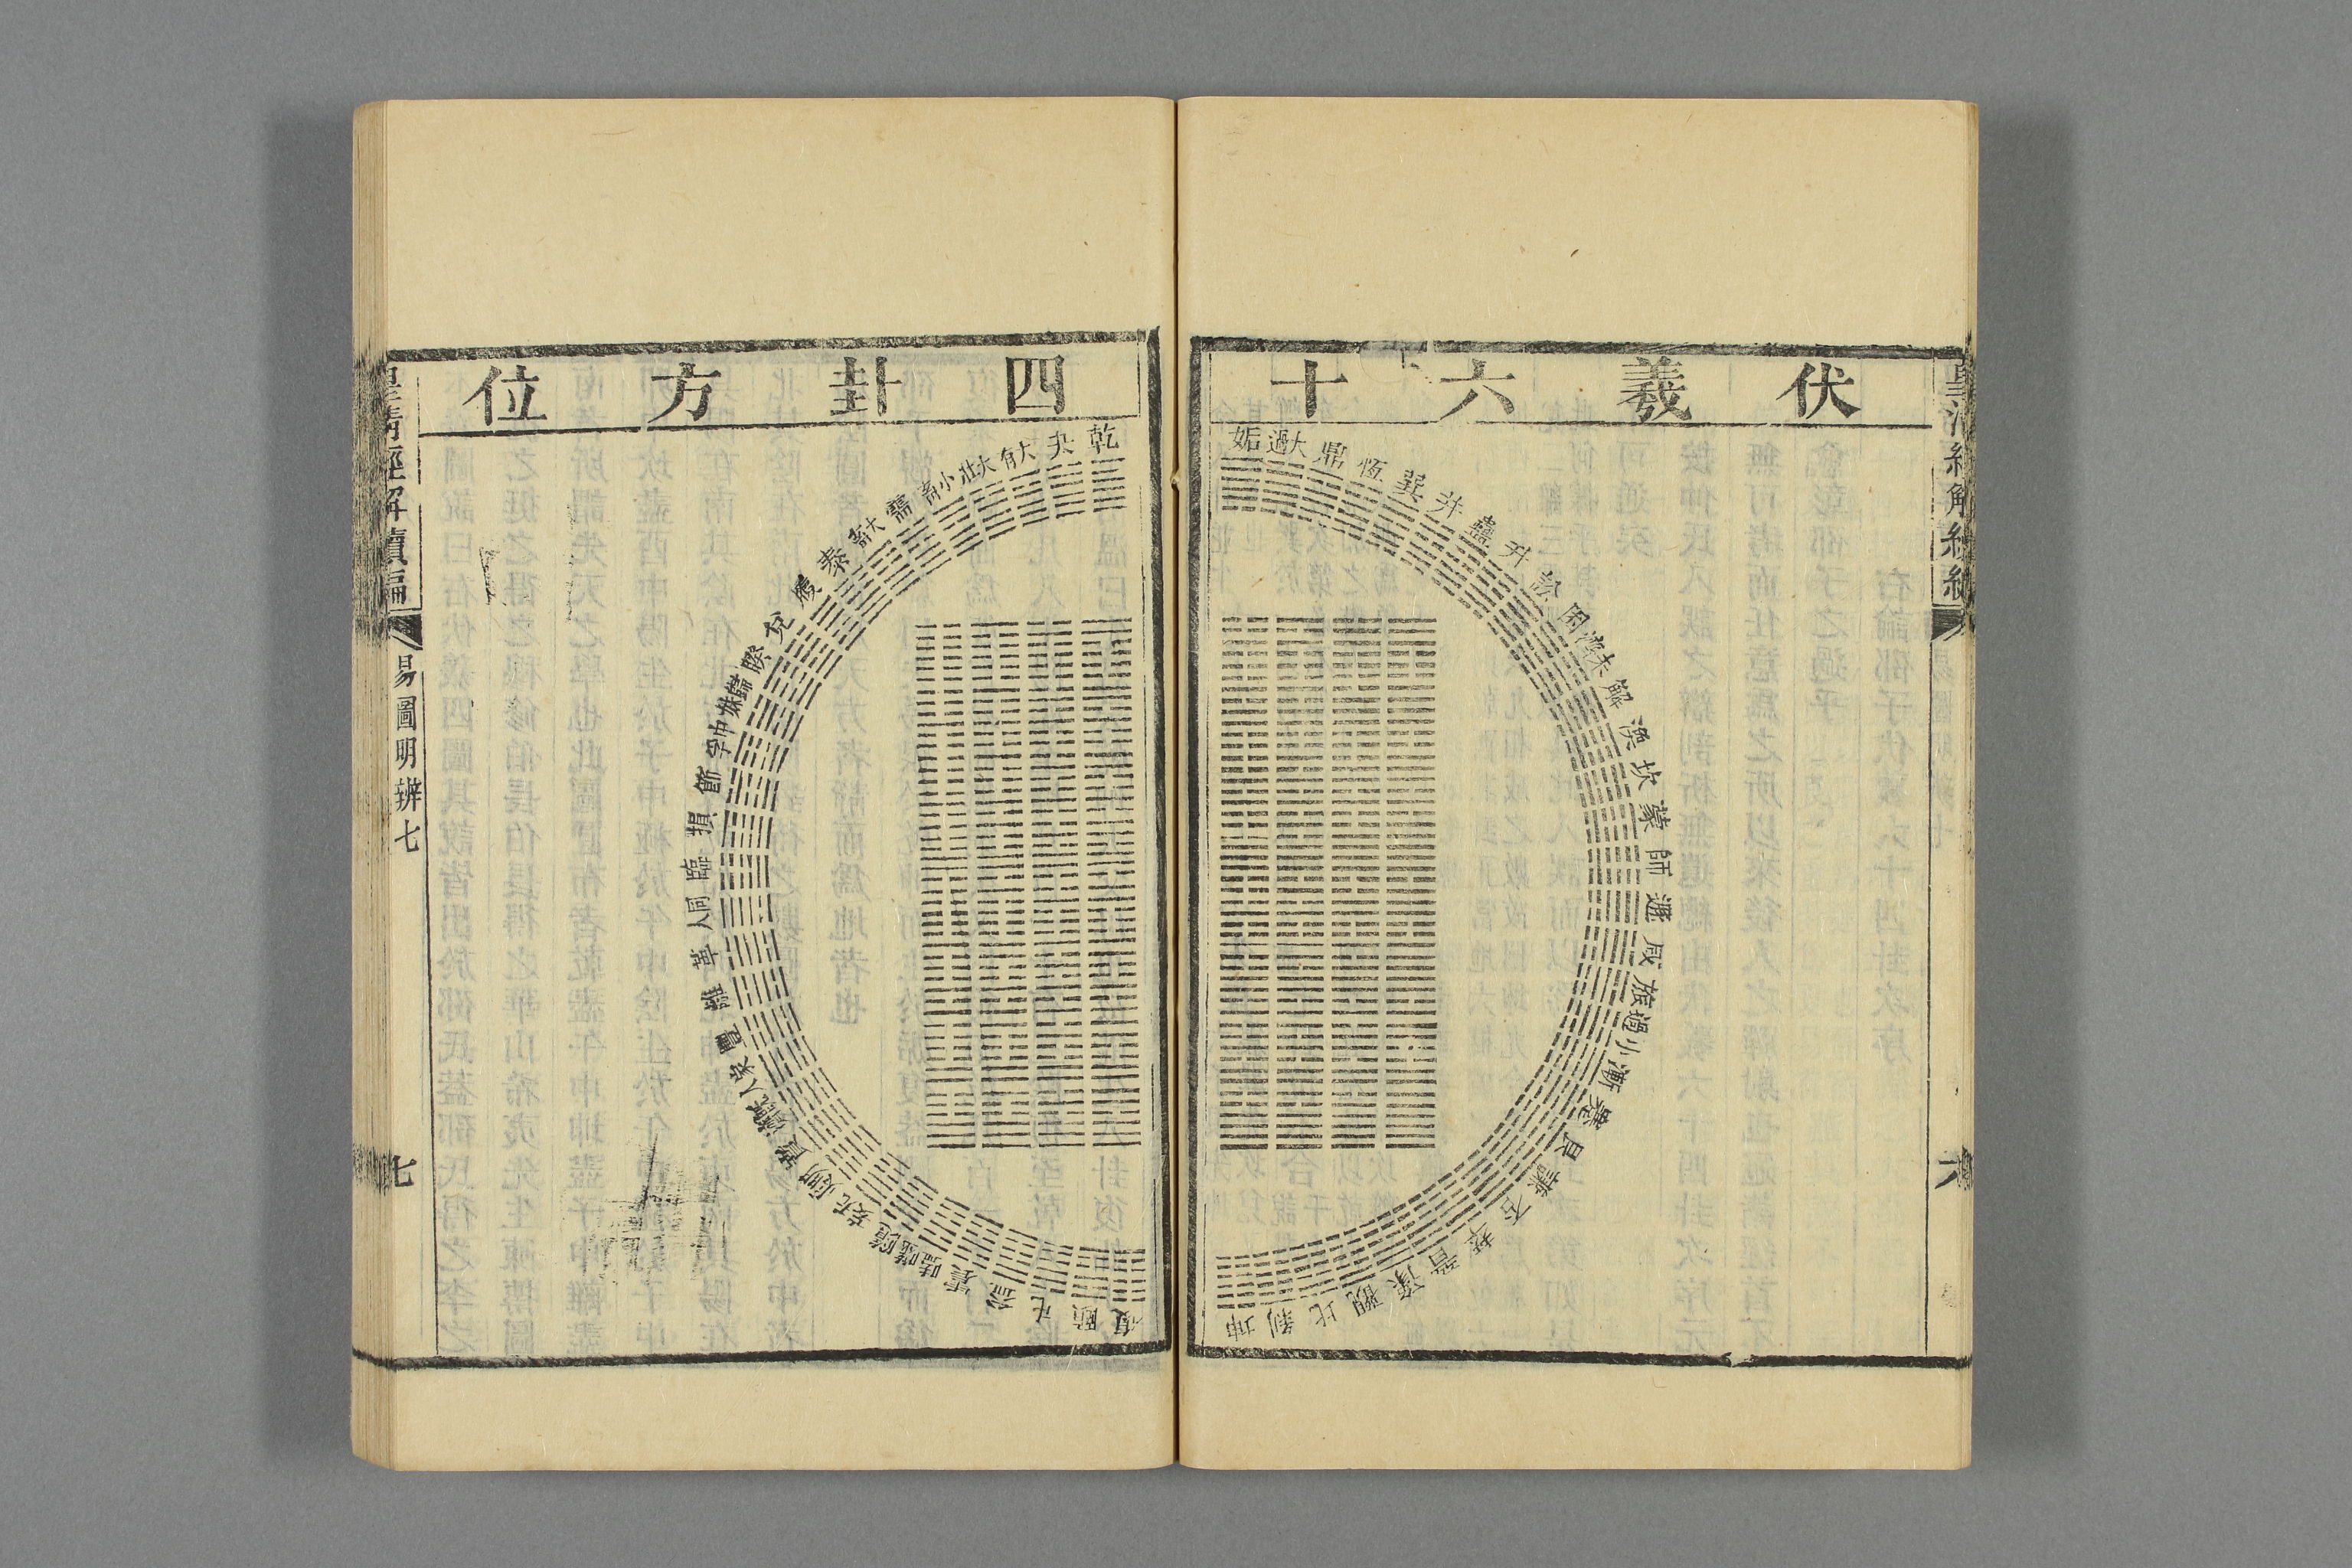 皇清經解續編
六
伏羲六十
姤 大過 鼎 恆 巽 井 蠱 升 訟 困 未濟 解 渙 坎 蒙 師 遯 咸 旅 小過 漸 蹇 艮 謙 否 萃 晉 豫 觀 比 剝 坤
四卦方位
乾 夬 大有 大壯 小畜 需 大畜 泰 履 兌 睽 歸妹 中孚 節 損 臨 同人 革 離 豐 家人 既濟 賁 明夷 无妄 隨 噬嗑 震 益 屯 頤 復
皇清經解續編
易圖明辨七
七